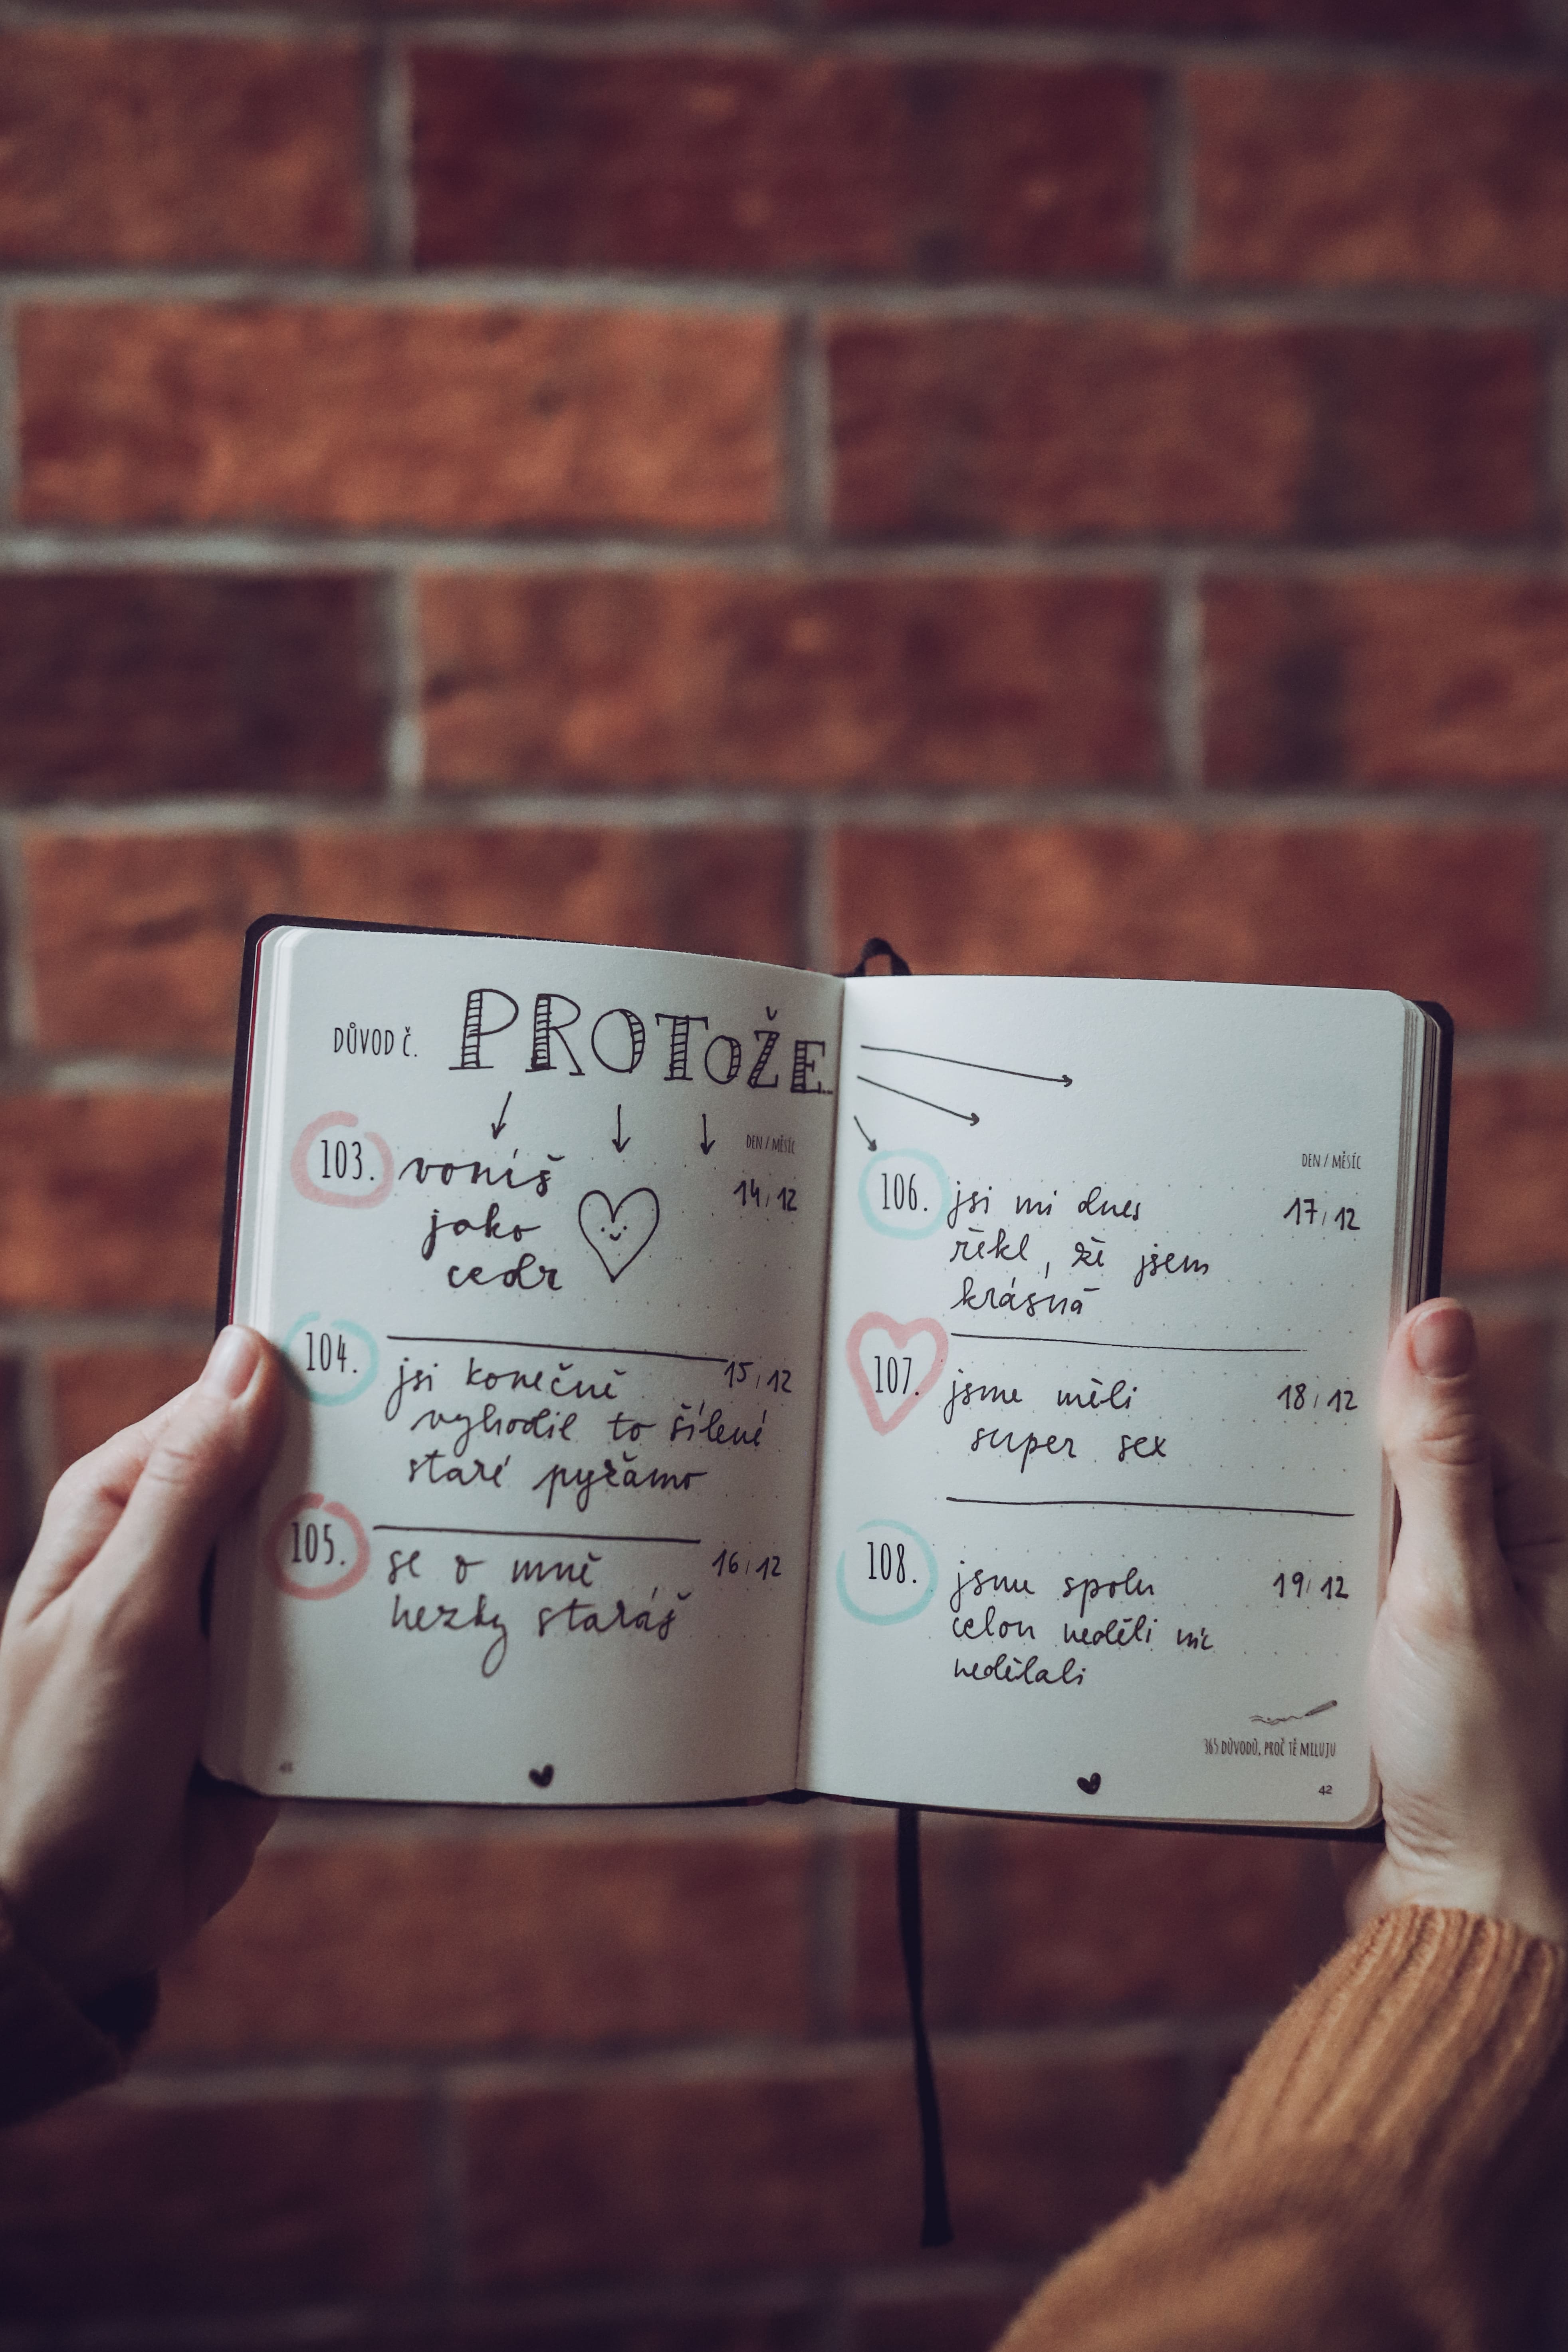 DŮVOD Č. PROTOŽE...
DEN / MĚSÍC
103. voníš 14/12
jako
cedr
104. jsi konečně 15/12
vyhodil to šílené
staré pyžamo
105. se o mně 16/12
hezky staráš
41
DEN / MĚSÍC
106. jsi mi dnes 17/12
řekl, že jsem
krásná
107. jsme měli 18/12
super sex
108. jsme spolu 19/12
celou neděli nic
nedělali
365 DŮVODŮ, PROČ TĚ MILUJU
42